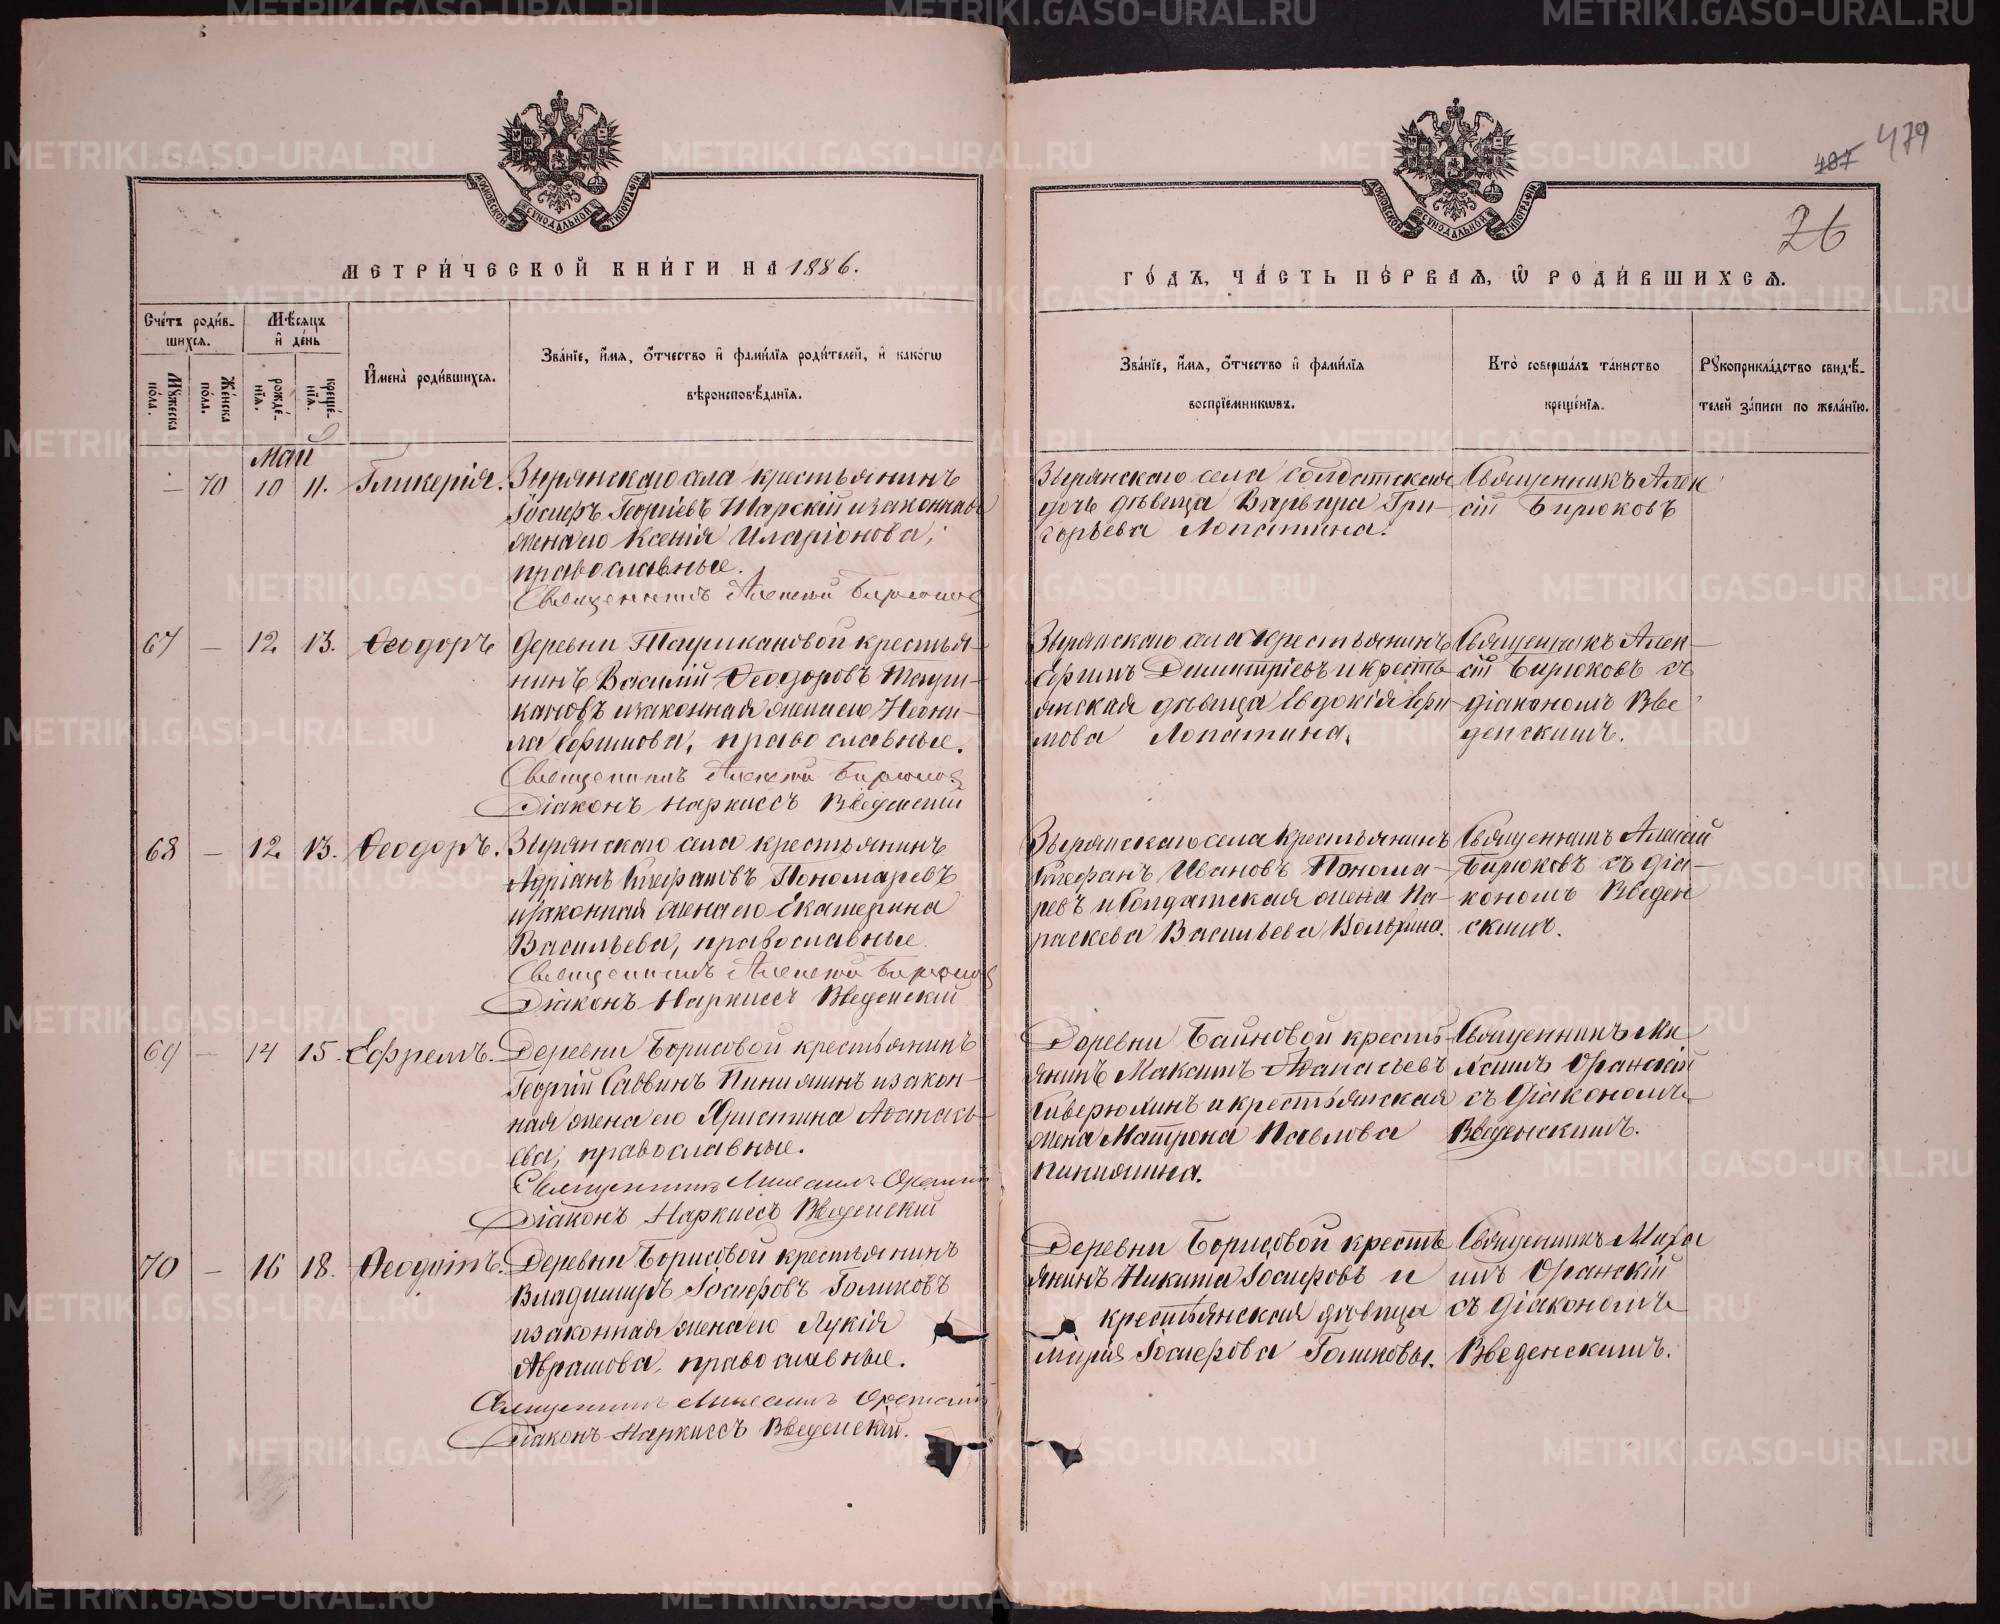 487 479
26
МЕТРИ́ЧЕСКОЙ КНИ́ГИ НА 1886.
ГО́ДЪ, ЧА́СТЬ ПЕ́РВАѦ, Ѿ РОДИ́ВШИХСѦ.
Сче́тъ роди́в-
шихсѧ.
Мѣ́сѧцъ
и҆ де́нь
Мꙋжеска
по́ла.
Же́нска
по́ла.
рожде́-
нїѧ.
креще́-
нїѧ.
И҆мена̀ роди́вшихсѧ.
Зва́нїе, и҆́мѧ, ѻ҆́тчество и҆ фамѝлїѧ роди́телей, и҆ како́гѡ
вѣроисповѣ́данїѧ.
Зва́нїе, и҆́мѧ, ѻ҆́тчество и҆ фами́лїѧ
воспрїе́мникѡвъ.
Кто̀ соверша́лъ та́инство
креще́нїѧ.
Рꙋкоприкла́дство свидѣ́-
телей за́писи по жела́нїю.
Май
— 70 10 11. Гликерія.
Зырянскаго села крестьянинъ
Іосифъ Георгіевъ Шарскій и законная
жена его Ксенія Иларіонова,
православные.
Священникъ Алексій Бирюковъ
Зырянскаго села солдатская
дочь дѣвица Варвара Гри-
горьева Лопатина.
Священникъ Алек
сій Бирюковъ
67 — 12 13. Ѳеодоръ
Деревни Таушкановой крестья-
нинъ Василій Ѳеодоровъ Тауш-
кановъ и законная жена его Неони-
ла Ефимова, православные.
Священникъ Алексій Бирюковъ
Діаконъ Наркиссъ Введенскій
Зырянскаго села крестьянинъ
Ефимъ Димитріевъ и кресть-
янская дѣвица Евдокія Ефи-
мова Лопатина.
Священникъ Алек-
сій Бирюковъ съ
діакономъ Вве
денскимъ.
68 — 12 13. Ѳеодоръ.
Зырянскаго села крестьянинъ
Адріанъ Стефановъ Пономаревъ
и законная жена его Екатерина
Васильева, православные.
Священникъ Алексій Бирюковъ
Діаконъ Наркиссъ Введенскій
Зырянскаго села крестьянинъ
Стефанъ Ивановъ Понома-
ревъ и солдатская жена Па-
раскева Васильева
Священникъ Алексій
Бирюковъ съ діа-
кономъ Введен
скимъ.
69 — 14 15. Ефремъ.
Деревни Борисовой крестьянинъ
Георгій Саввинъ Пинижинъ и закон-
ная жена его Христина Аѳанась-
ева, православные.
Священникъ Михаилъ Оранскій
Діаконъ Наркиссъ Введенскій
Деревни Байновой кресть-
янинъ Максимъ Аѳанасьевъ
и крестьянская
жена Матрона Павлова
Пинижина.
Священникъ Ми
хаилъ Оранскій
съ діакономъ
Введенскимъ.
70 — 16 18. Ѳеодотъ.
Деревни Борисовой крестьянинъ
Владимиръ Іосифовъ Голиковъ
и законная жена его Лукія
Аврамова, православные.
Священникъ Михаилъ Оранскій
Діаконъ Наркиссъ Введенскій.
Деревни Борисовой кресть
янинъ Никита Іосифовъ и
крестьянская дѣвица
Марія Іосифова Голиковы.
Священникъ Миха
илъ Оранскій
съ діакономъ
Введенскимъ.